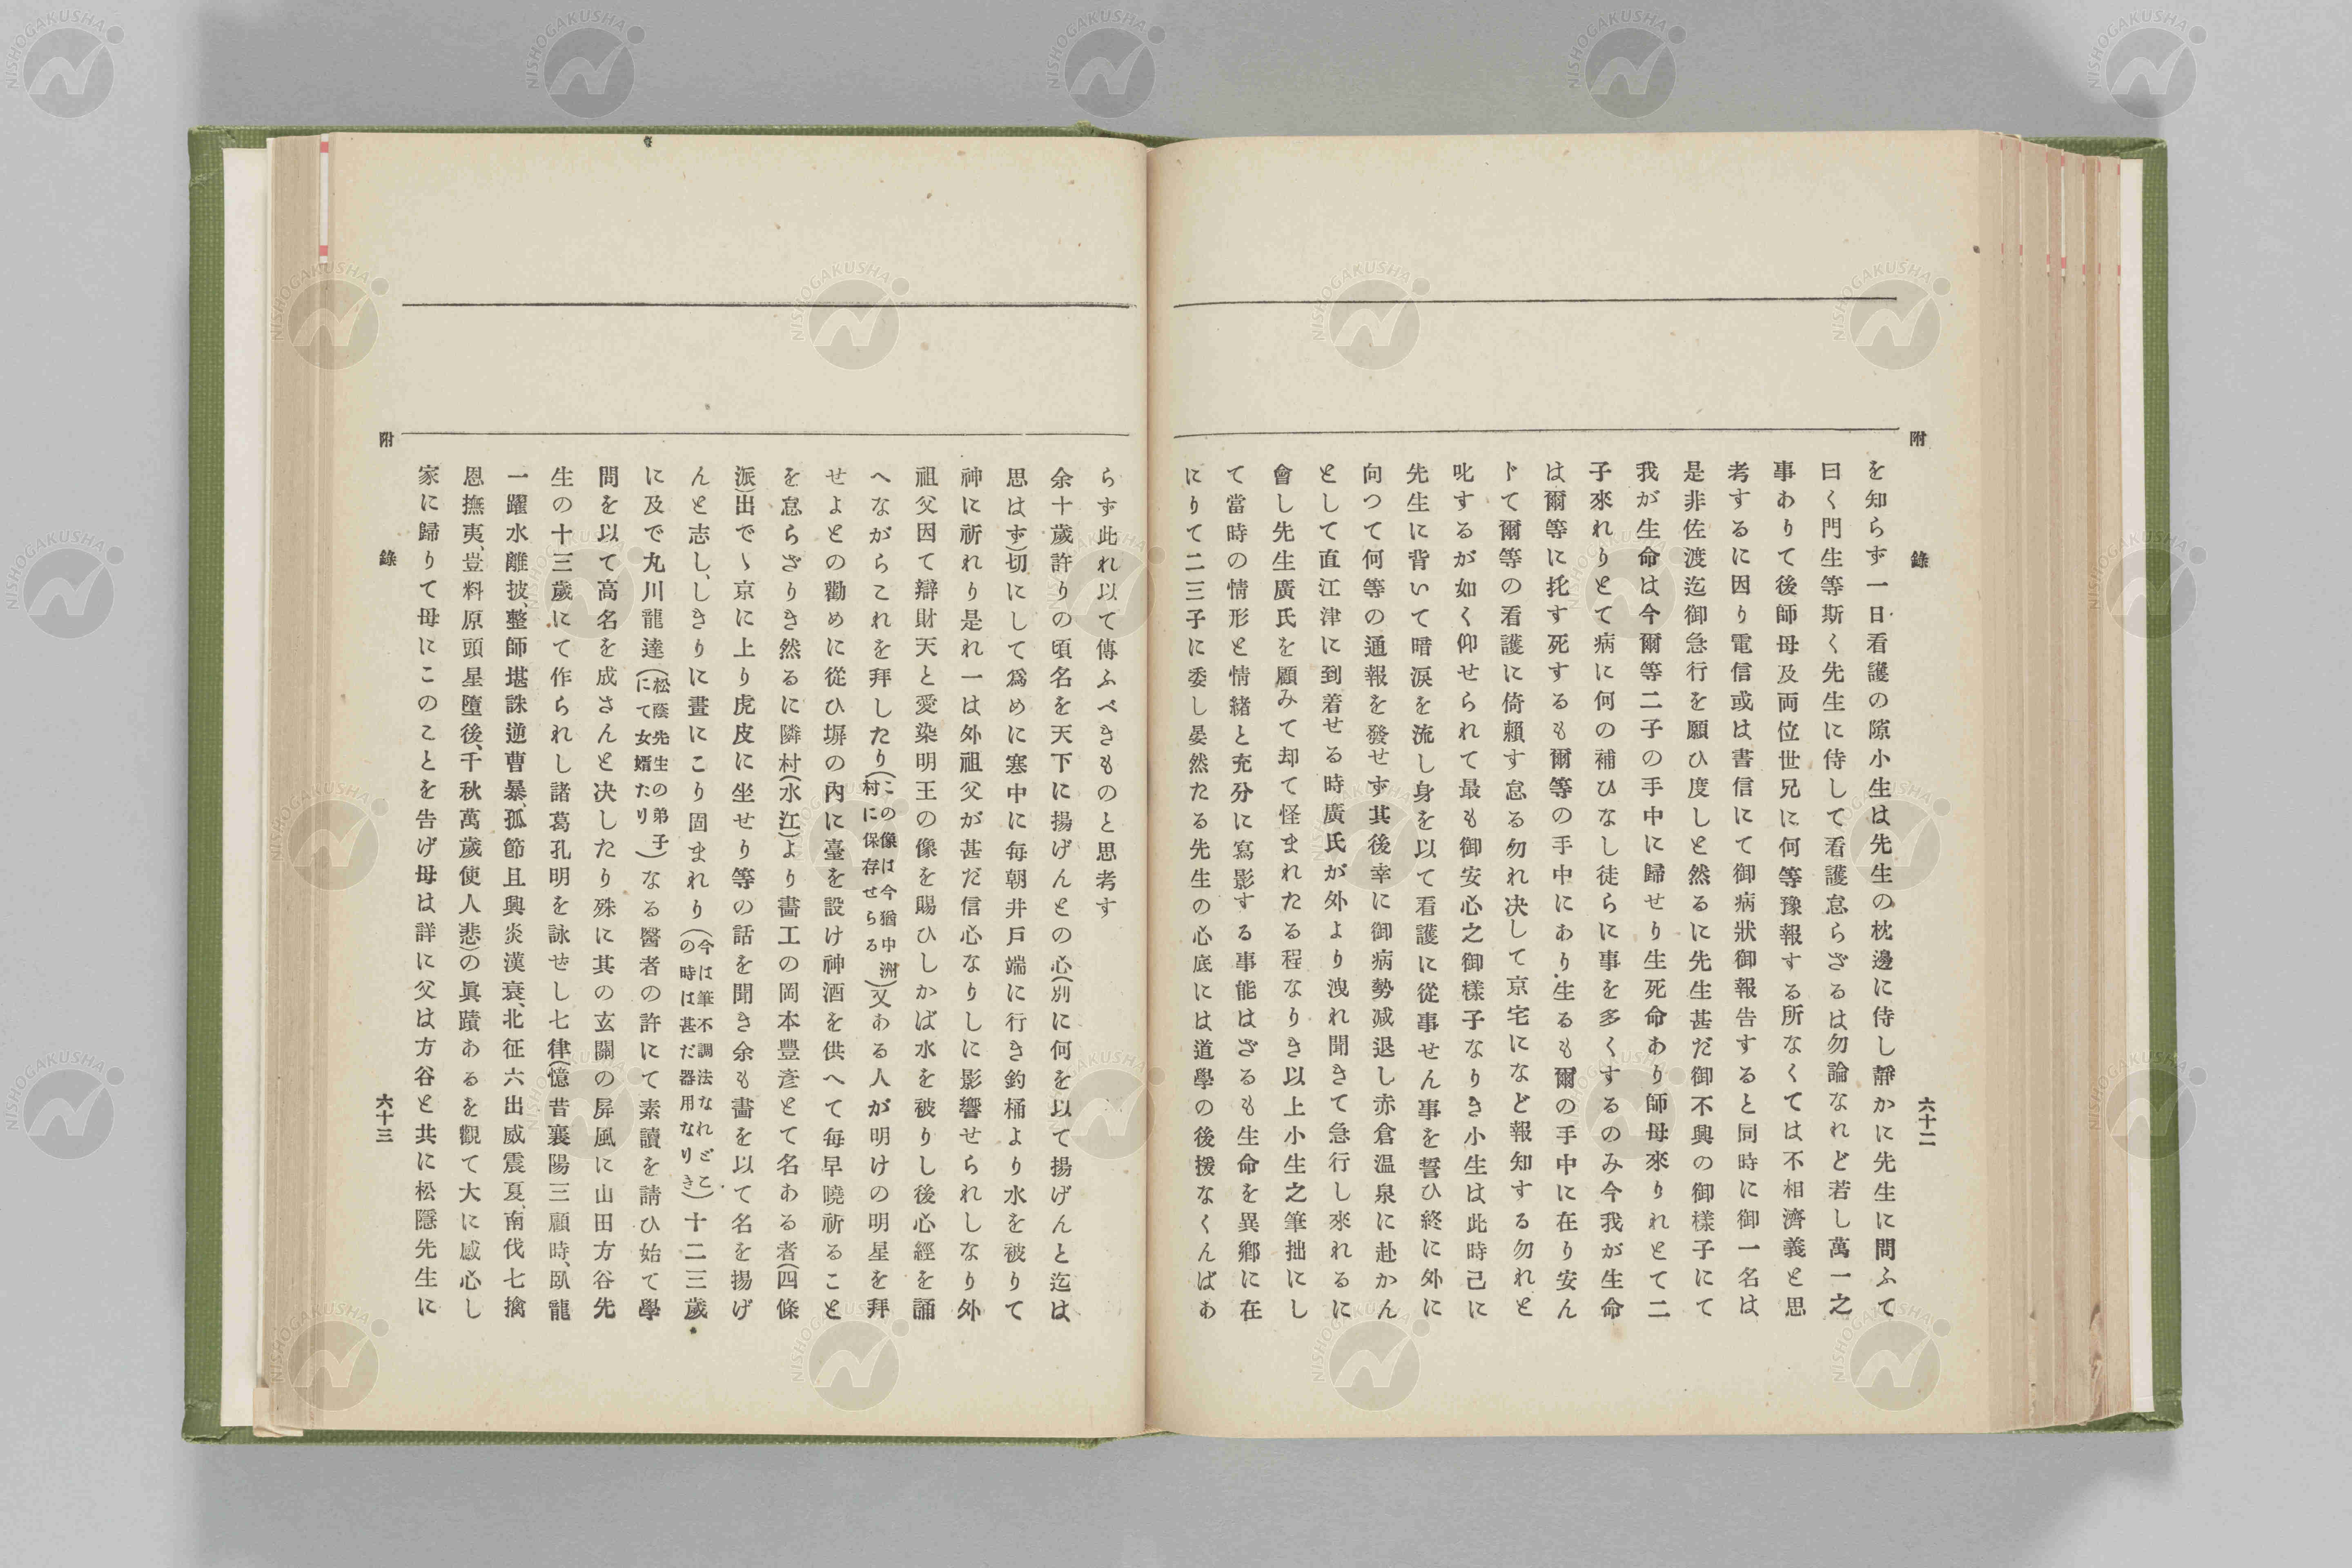 附錄
六十二
を知らず一日看護の隙小生は先生の枕邊に侍し靜かに先生に問ふて
曰く門生等斯く先生に侍して看護怠らざるは勿論なれど若し萬一之
事ありて後師母及両位世兄に何等豫報する所なくては不相濟義と思
考するに因り電信或は書信にて御病狀御報告すると同時に御一名は
是非佐渡迄御急行を願ひ度しと然るに先生甚だ御不興の御樣子にて
我が生命は今爾等二子の手中に歸せり生死命あり師母來りれとて二
子來れりとて病に何の補ひなし徒らに事を多くするのみ今我が生命
は爾等に托す死するも爾等の手中にあり生るも爾の手中に在り安ん
ドて爾等の看護に倚賴す怠る勿れ决して京宅になど報知する勿れと
叱するが如く仰せられて最も御安心之御樣子なりき小生は此時己に
先生に背いて暗淚を流し身を以て看護に從事せん事を誓ひ終に外に
向つて何等の通報を發せず其後幸に御病勢减退し赤倉溫泉に赴かん
として直江津に到着せる時廣氏が外より洩れ聞きて急行し來れるに
會し先生廣氏を顧みて却て怪まれたる程なりき以上小生之筆拙にし
て當時の情形と情緒と充分に寫影する事能はざるも生命を異鄉に在
にりて二三子に委し晏然たる先生の心底には道學の後援なくんばあ
らず此れ以て傳ふべきものと思考す
余十歲許りの頃名を天下に揚げんとの心(別に何を以て揚げんと迄は
思はず)切にして爲めに寒中に每朝井戶端に行き釣桶より水を被りて
神に祈れり是れ一は外祖父が甚だ信心なりしに影響せられしなり外
祖父因て辯財天と愛染明王の像を賜ひしかば水を被りし後心經を誦
へながらこれを拜したり(この像は今猶中洲村に保存せらる)又ある人が明けの明星を拜
せよとの勸めに從ひ塀の內に臺を設け神酒を供へて每早曉祈ること
を怠らざりき然るに隣村(水江)より畫工の岡本豐彥とて名ある者(四條
派)出でゝ京に上り虎皮に坐せり等の話を聞き余も畫を以て名を揚げ
んと志し、しきりに畫にこり固まれり(今は筆不調法なれどこの時は甚だ器用なりき)十二三歲
に及で丸川龍達(松蔭先生の弟子にて女婿たり)なる醫者の許にて素讀を請ひ始て學
問を以て高名を成さんと决したり殊に其の玄關の屏風に山田方谷先
生の十三歲にて作られし諸葛孔明を詠せし七律(憶昔襄陽三顧時、臥龍
一躍水離披、整師堪誅逆曹暴、孤節且興炎漢衰、北征六出威震夏、南伐七擒
恩撫夷、豈料原頭星墮後、千秋萬歲使人悲)の眞蹟あるを觀て大に感心し
家に歸りて母にこのことを告げ母は詳に父は方谷と共に松隱先生に
附錄
六十三